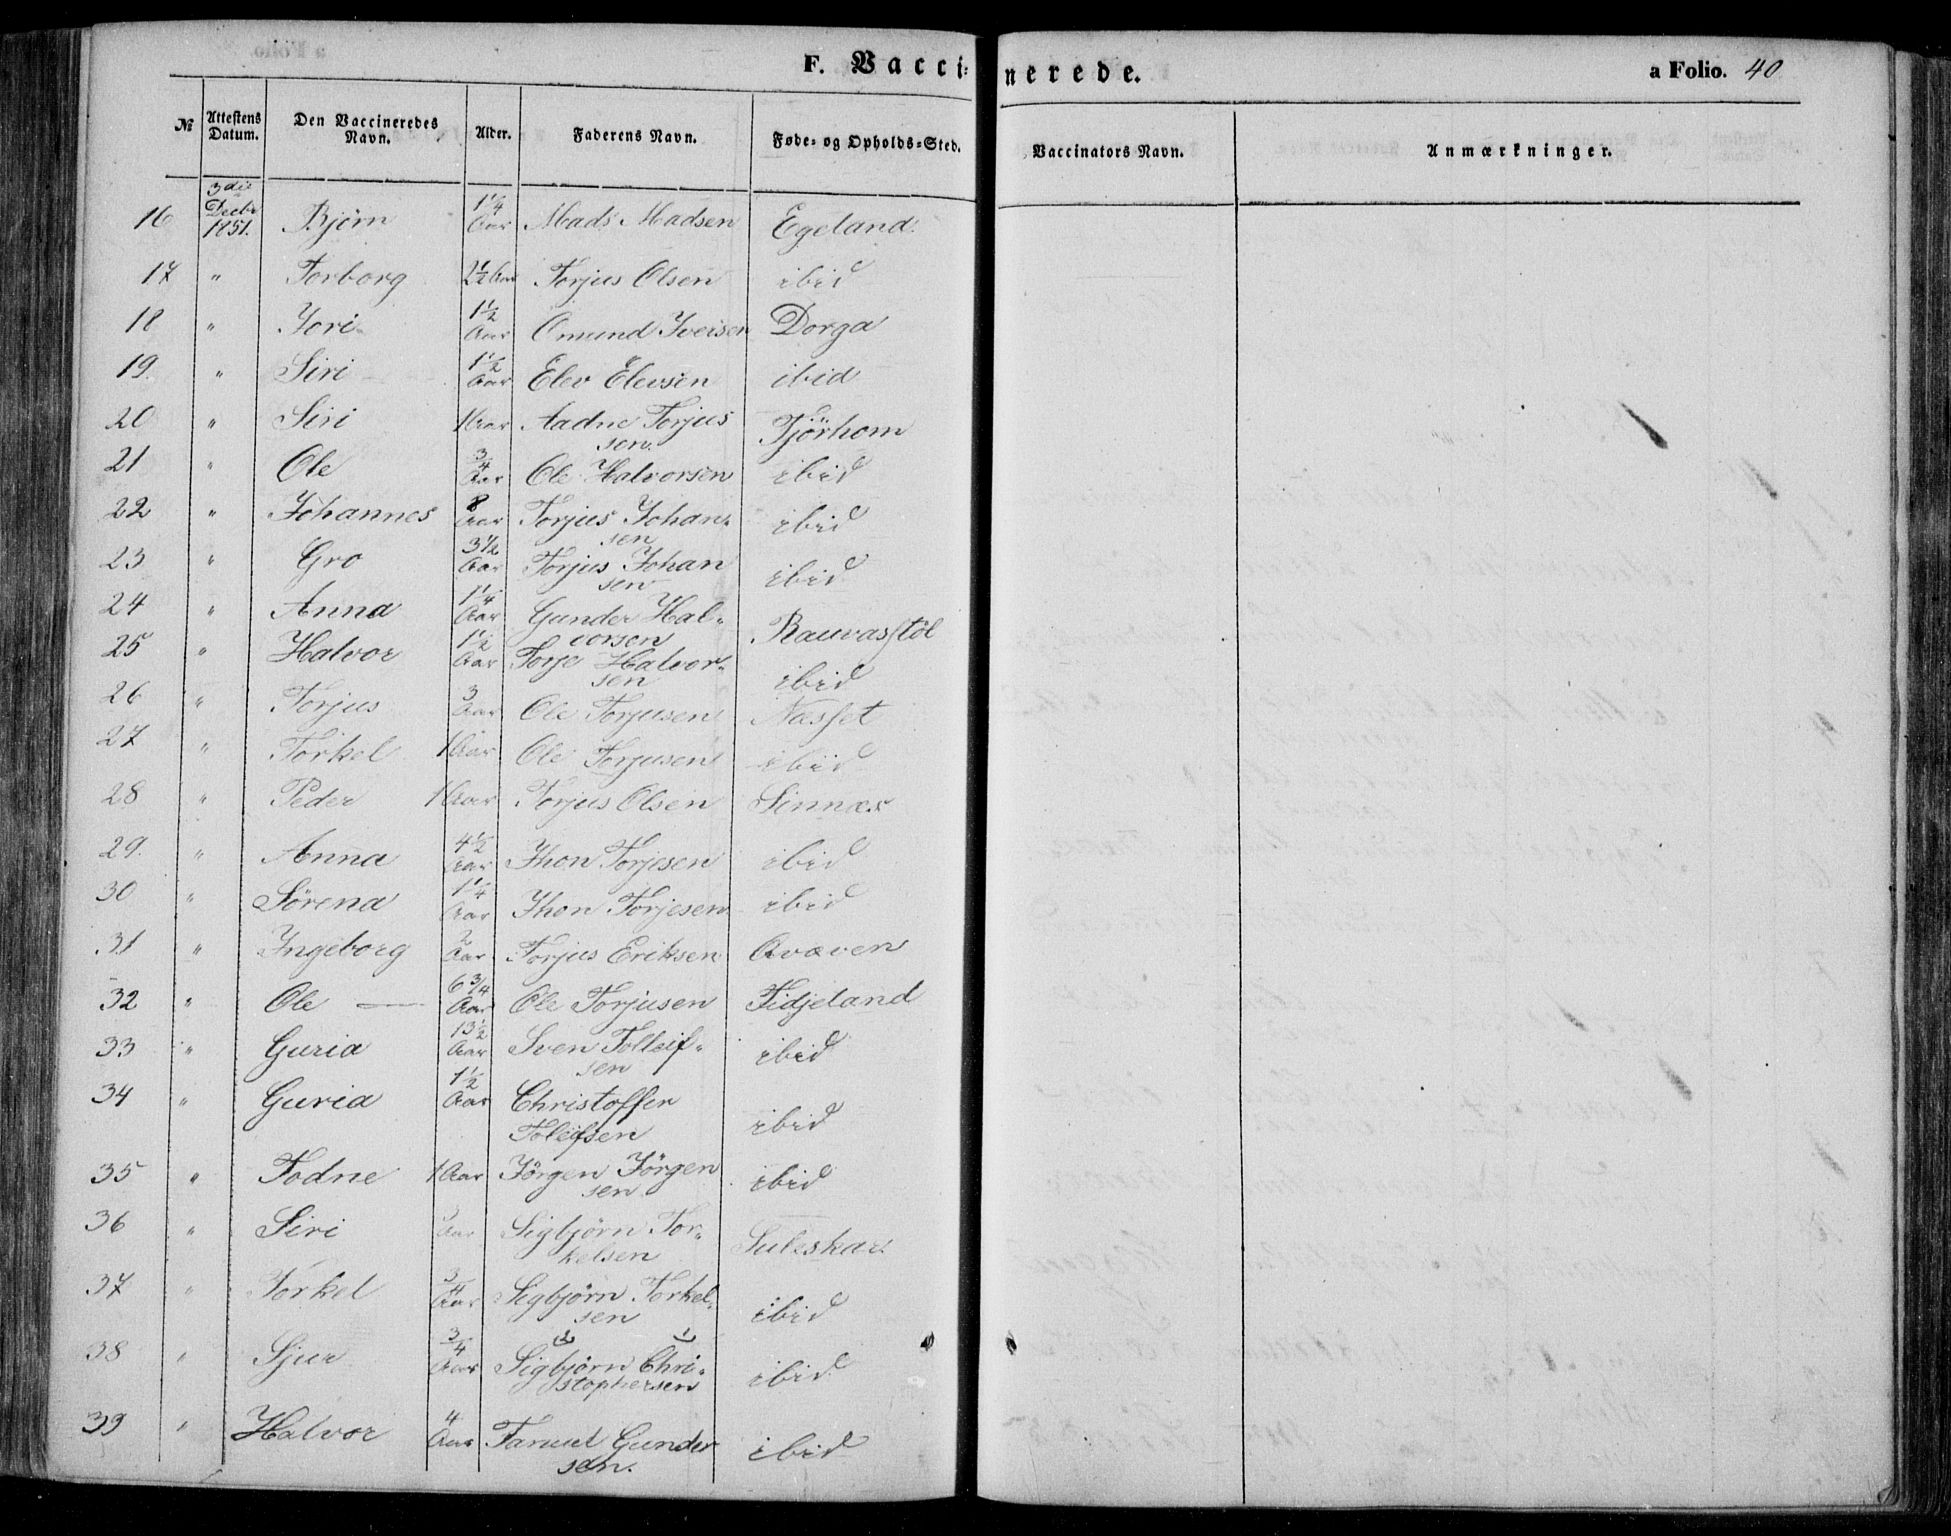 F. Vaccinerede.
a Folio. 40
№ | Attestens Datum. | Den Vaccineredes Navn. | Alder. | Faderens Navn. | Føde- og Opholds-Sted. | Vaccinators Navn. | Anmærkninger.
16 | 3die Decbr 1851. | Bjørn | 1 1/4 Aar | Mads Madsen | Egeland
17 | " | Torborg | 2 1/2 Aar | Torjus Olsen | ibid
18 | " | Jori | 1 1/2 Aar | Omund Iversen | Dorga
19. | " | Siri | 1 1/2 Aar | Elev Elevsen | ibid
20 | " | Siri | 1 Aar | Aadne Torjussen. | Tjörhom
21 | " | Ole | 3/4 Aar | Ole Halvorsen | ibid
22 | " | Johannes | 8 Aar | Torjus Johansen | ibid
23 | " | Gro | 3 1/2 Aar | Torjus Johansen | ibid
24 | " | Anna | 1 1/4 Aar | Gunder Halvorsen | Rauvasstöl
25 | " | Halvor | 1 1/2 Aar | Torje Halvorsen | ibid
26 | " | Torjus | 3 Aar | Ole Torjusen | Næsset
27 | " | Torkel | 1 Aar | Ole Torjusen | ibid
28 | " | Peder | 1 Aar | Torjus Olsen | Sinnæs
29. | " | Anna | 4 1/2 Aar | Jhon Torjesen | ibid
30 | " | Sörena | 1 1/4 Aar | Jhon Torjesen | ibid
31 | " | Ingeborg | 2 Aar | Torjus Eriksen | Qvæven
32 | " | Ole — | 6 3/4 Aar | Ole Torjusen | Fidjeland
33 | " | Guria | 13 1/2 Aar | Sven Tolleifsen | ibid
34 | " | Guria | 1 1/2 Aar | Christoffer Toleifsen | ibid
35 | " | Todne | 1 Aar | Jörgen Jörgensen | ibid
36 | " | Siri | Aar | Sigbjörn Torkelsen | Suleskar
37 | " | Torkel | 3/4 Aar | Sigbjörn Torkelsen | ibid
38 | " | Sjur | 3/4 Aar | Sigbjörn Christophersen | ibid
39 | " | Halvor | 4 Aar | Taruel Gundersen. | ibid